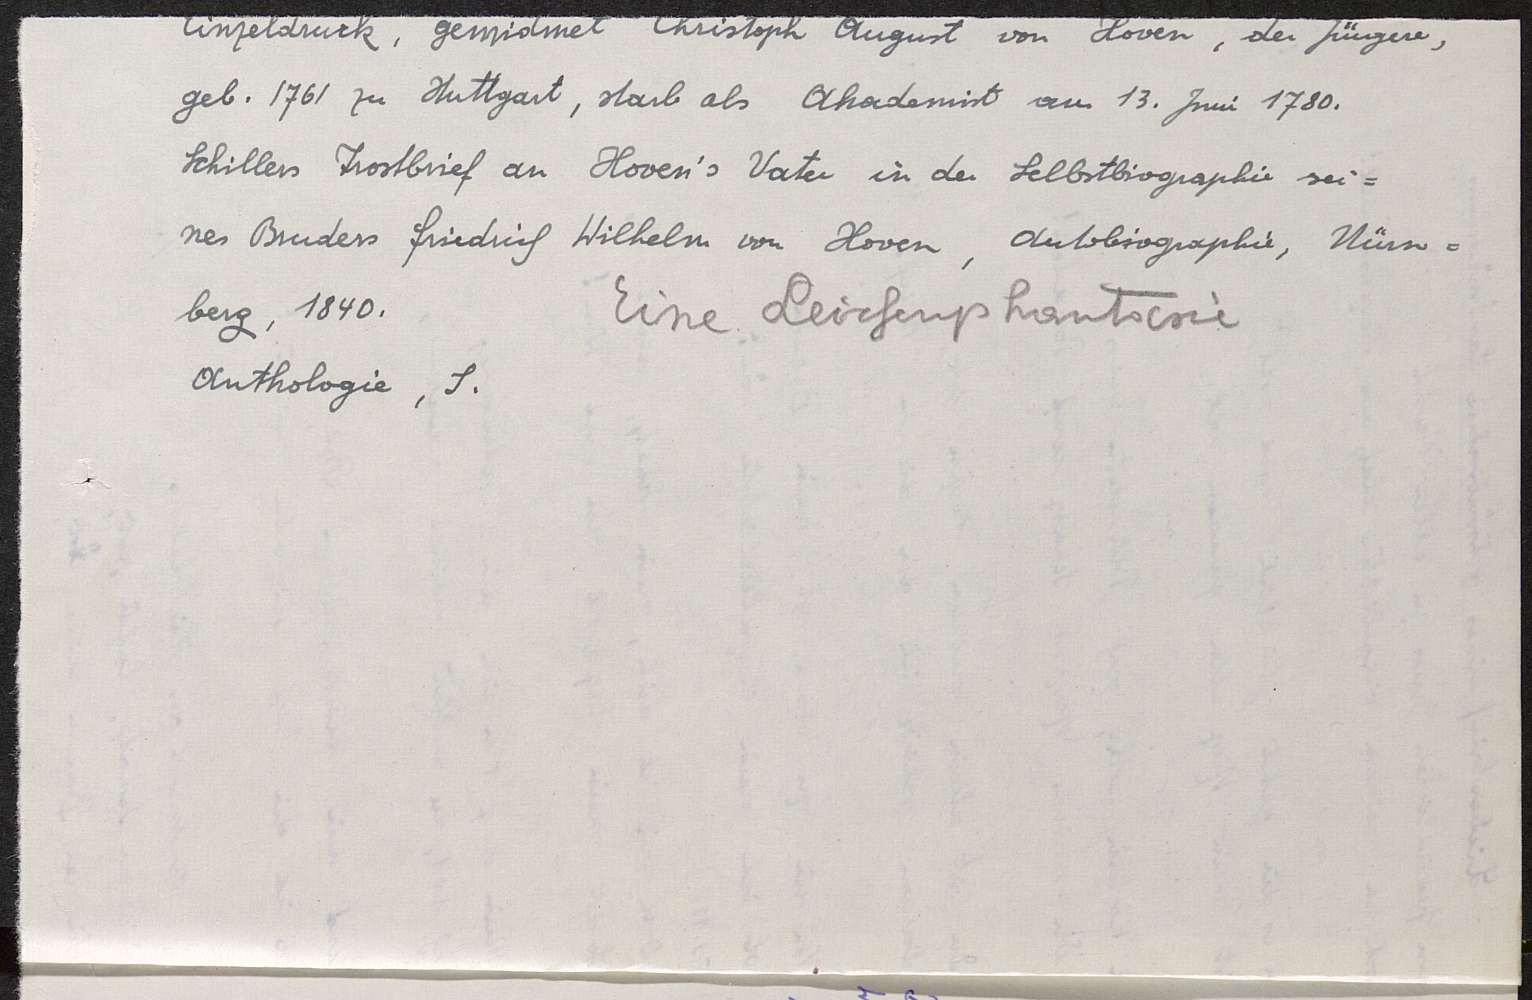 Einzeldruck, gewidmet Christoph August von Hoven, der jüngere,
geb. 1761 zu Stuttgart, starb als Akademist am 13. Juni 1780.
Schillers Trostbrief an Hoven's Vater in der Selbstbiographie sei=
nes Bruders Friedrich Wilhelm von Hoven, Autobiographie, Nürn=
berg, 1840.
Eine Leichenphantasie
Anthologie, S.